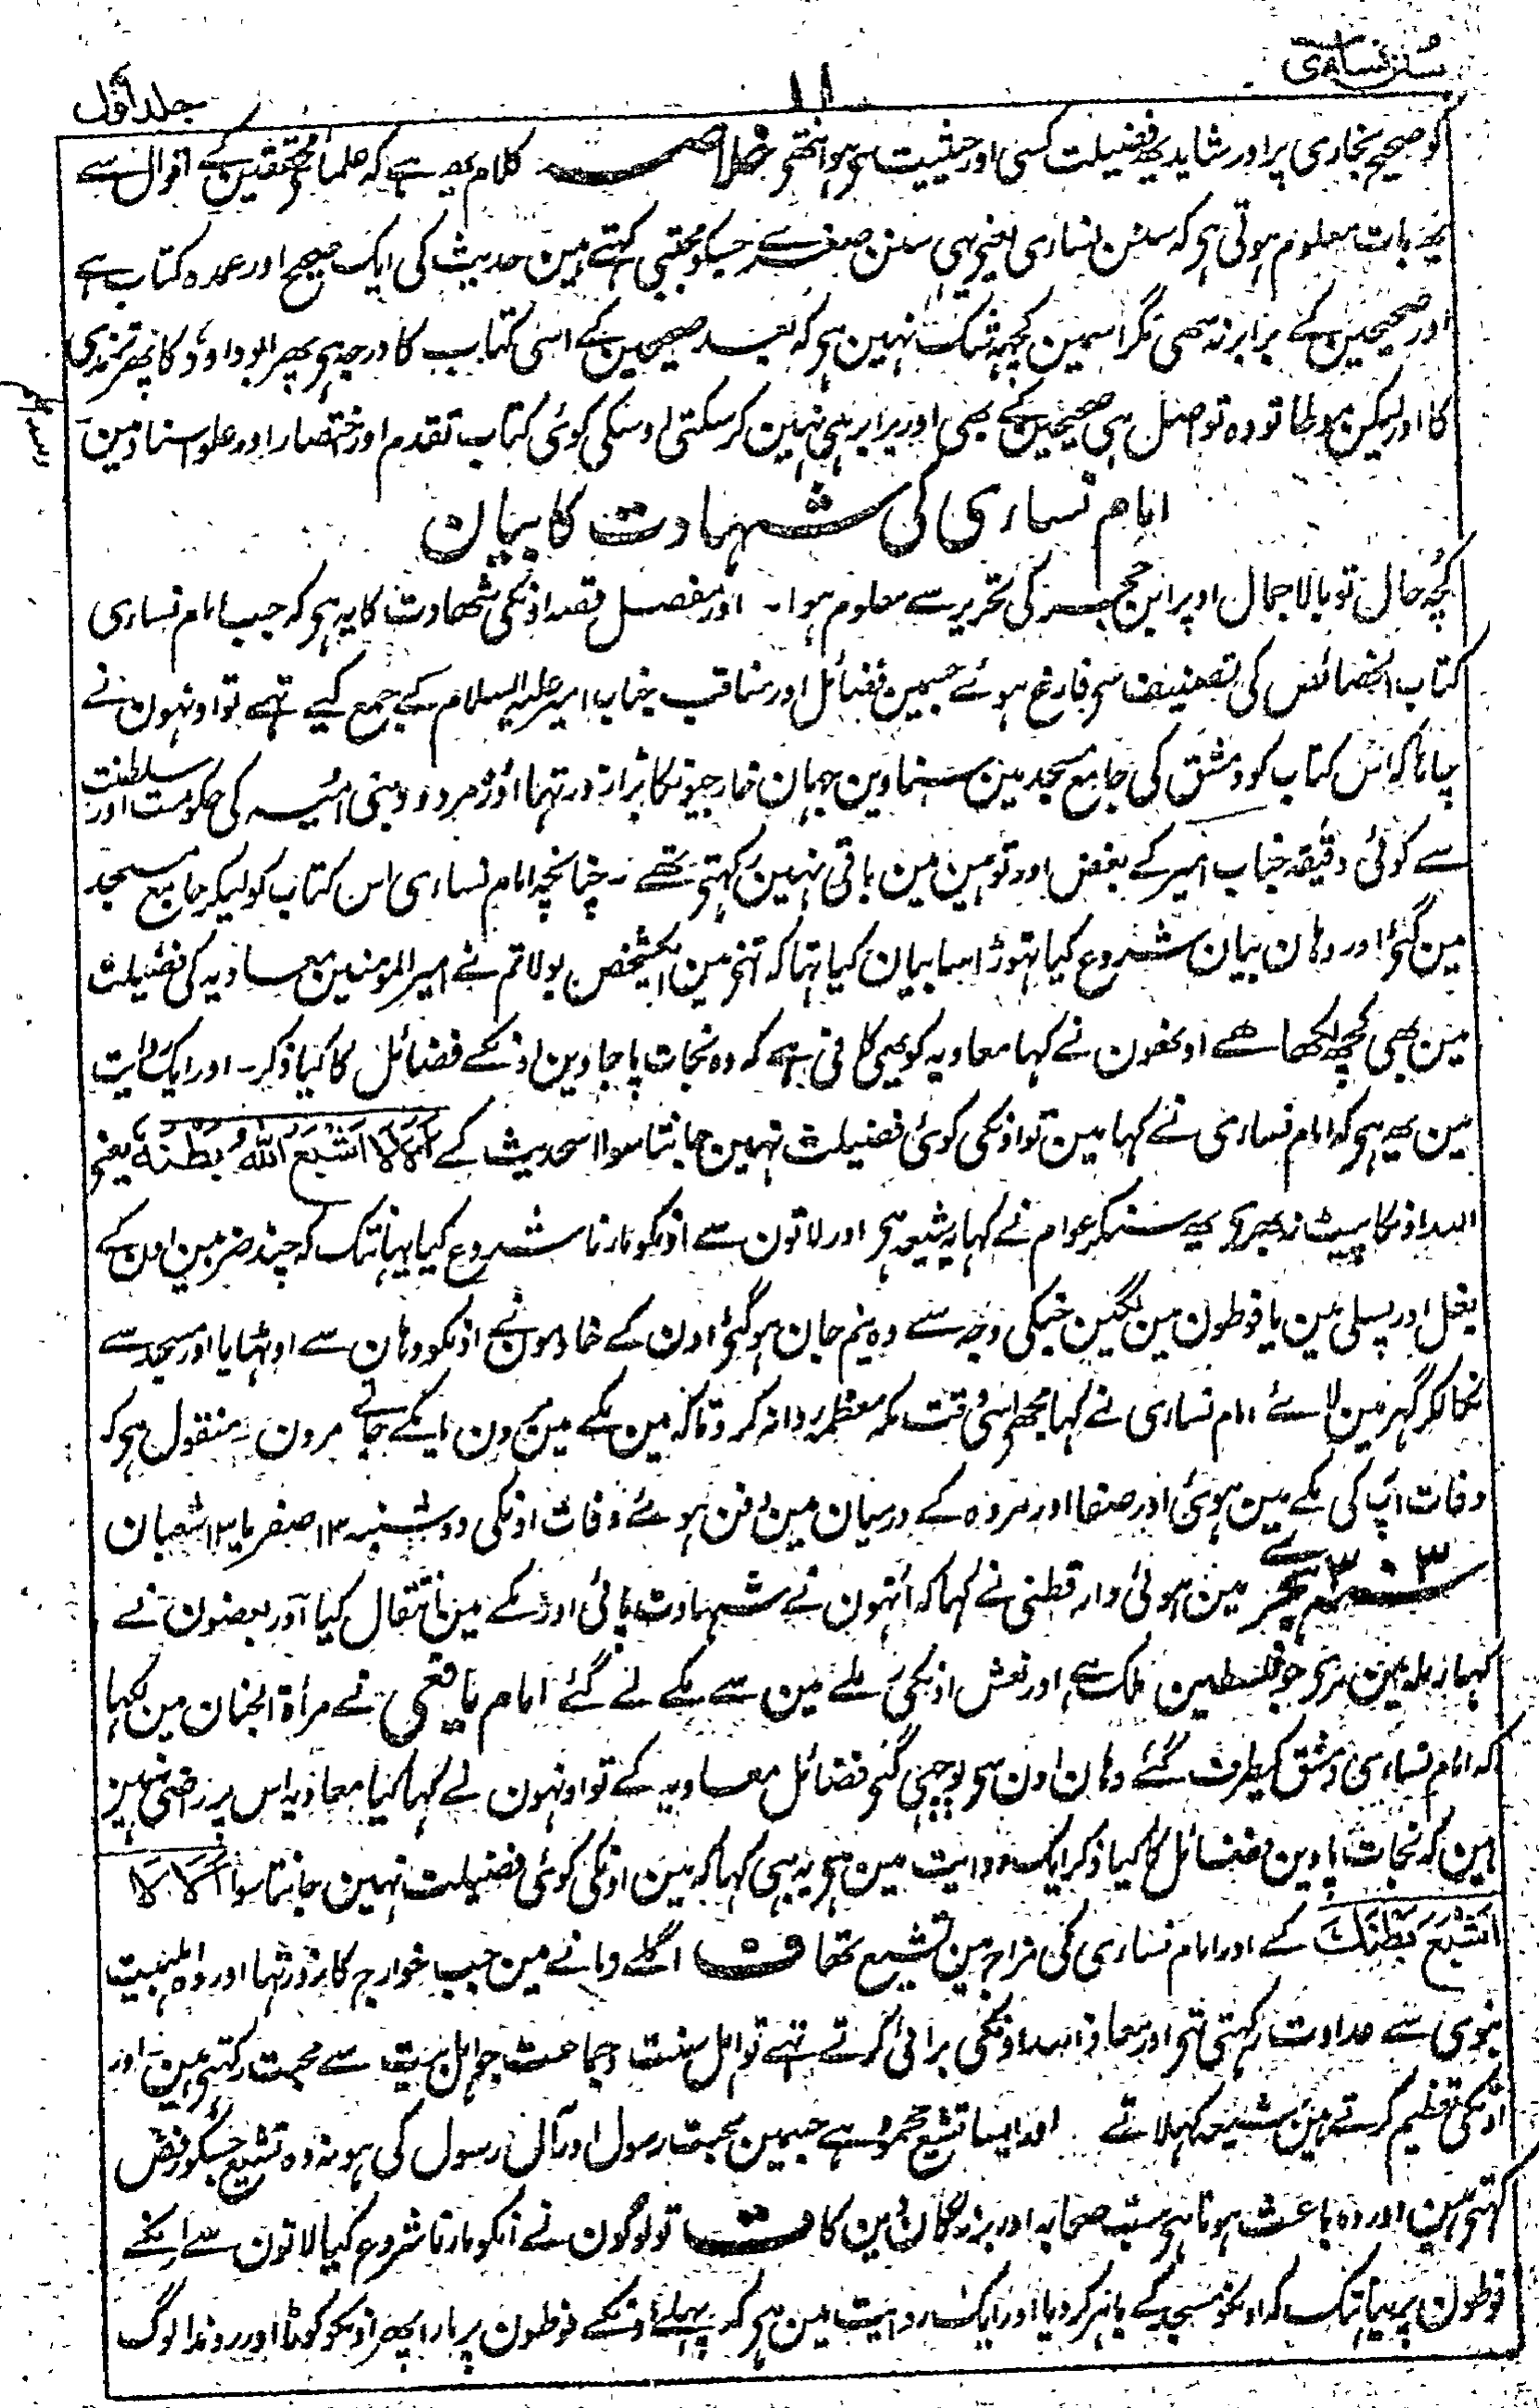 سنن نسائی
۱۱
جلد اول
کو صحیح بخاری پر اور شاید یہ فضیلت کسی اور حیثیت سی ہو انتھی خلاصہ کلام یہ ہے کہ علمائے محققین کے اقوال سے
یہ بات معلوم ہوتی ہی کہ سنن نسائی یعنی یہی سنن صغرے جسکو مجتبی کہتے ہین حدیث کی ایک صحیح اور عمدہ کتاب ہے
اور صحیحین کے برابر نہ سھی مگر اسمین کچہہ شک نہین ہی کہ بعد صحیحین کے اسی کتاب کا درجہ ہی پھر ابو داؤد کا پھر ترمذی
کا اور لیکن موطا تو وہ تو اصل ہی صحیحین کے بھی اور برابر ہی نہین کر سکتی اوسکی کوئی کتاب تقدم اور اختصار اور علو اسناد مین
امام نسائی کی شہادت کا بیان
کچہہ حال تو بالاجمال اوپر ابن حجر کی تحریر سے معلوم ہوا۔ اور مفصل قصہ اونکی شھادت کا یہ ہی کہ جب امام نسائی
کتاب الخصائص کی تصنیف سی فارغ ہوئے جسمین فضائل اور مناقب جناب امیر علیہ السلام کے جمع کیے تہے تو اونہون نے
چاہا کہ اس کتاب کو دمشق کی جامع مسجد مین سناوین جہان خارجیونکا بڑا زور تہا اور مردود بنی امیہ کی حکومت اور سلطنت
سے کوئی دقیقہ جناب امیر کے بغض اور توہین مین باقی نہین رکہتی تھے۔ چنانچہ امام نسائی اس کتاب کو لیکر جامع مسجد
مین گئے اور وہان بیان شروع کیا تہوڑا سا بیان کیا تہا کہ اتنے مین ایکشخص بولا تم نے امیر المومنین معاویہ کی فضیلت
مین بھی کچھ لکھا ہے اونھون نے کہا معاویہ کو یہی کافی ہے کہ وہ نجات پا جاوین اونکے فضائل کا کیا ذکر۔ اور ایک روایت
مین یہ ہی کہ امام نسائی نے کہا مین تو اونکی کوئی فضیلت نہین جانتا سوا اسحدیث کے اَلَا لَا اَشْبَعَ اللّٰہُ بَطْنَہٗ یعنی
اللہ اونکا پیٹ نہ بھرے یہ سنکر عوام نے کہا یہ شیعہ ہی اور لاتون سے اونکو مارنا شروع کیا یہانتک کہ چند ضربین اون کے
بغل اور پسلی مین یا فوطون مین لگین جسکی وجہ سے وہ نیم جان ہو گئے اون کے خادمون نے اونکو وہان سے اوٹہایا اور مسجد سے
نکالکر گہر مین لائے امام نسائی نے کہا مجھے اسی وقت مکہ معظمہ روانہ کر دو تاکہ مین مکے مین مرون یا مکے جاتے مرون۔ منقول ہی کہ
وفات آپ کی مکے مین ہوئی اور صفا اور مروہ کے درمیان مین دفن ہوئے وفات اونکی دوشنبہ ۱۳ صفر یا ۱۳ شعبان
سنہ ۳۰۳ ہجری مین ہوئی دار قطنی نے کہا کہ اُنہون نے شہادت پائی اور مکے مین انتقال کیا اور بعضون نے
کہا رملہ مین مرے جو فلسطین ملک ہے اور نعش اونکی رملے مین سے مکے لے گئے امام یافعی نے مرأۃ الجنان مین لکہا
کہ امام نسائی دمشق کیطرف گئے وہان اون سی پوچھے گئے فضائل معاویہ کے تو اونہون نے کہا کیا معاویہ اس پر راضی نہین
ہین کہ نجات پاوین فضائل کا کیا ذکر ایک روایت مین ہی یہ بہی کہا کہ مین اونکی کوئی فضیلت نہین جانتا سوا اَلَا لَا
اَشْبَعَ بَطْنَکَ کے اور امام نسائی کی مزاج مین تشیع تھا ف اگلے زمانے مین جب خوارج کا زور تہا اور وہ اہلبیت
نبوی سے عداوت رکہتی تھی اور معاذ اللہ اونکی برائی کرتے تہے تو اہل سنت و جماعت جو اہل بیت سے محبت رکہتے ہین اور
اونکی تعظیم کرتے ہین شیعہ کہلاتے اور ایسا تشیع محمود ہے جسمین محبت رسول اور آل رسول کی ہو نہ وہ تشیع جسکو رفض
کہتے ہین اور وہ باعث ہوتا ہی سب صحابہ اور بزرگان دین کا ف تو لوگون نے انکو مارنا شروع کیا لاتون سے انکے
فوطون پر یہانتک کہ اونکو مسجد کے باہر کر دیا اور ایک روایت مین ہی کہ پہلے اونکے فوطون پر مارا پھر اونکو کوٹا اور روندا لوگ